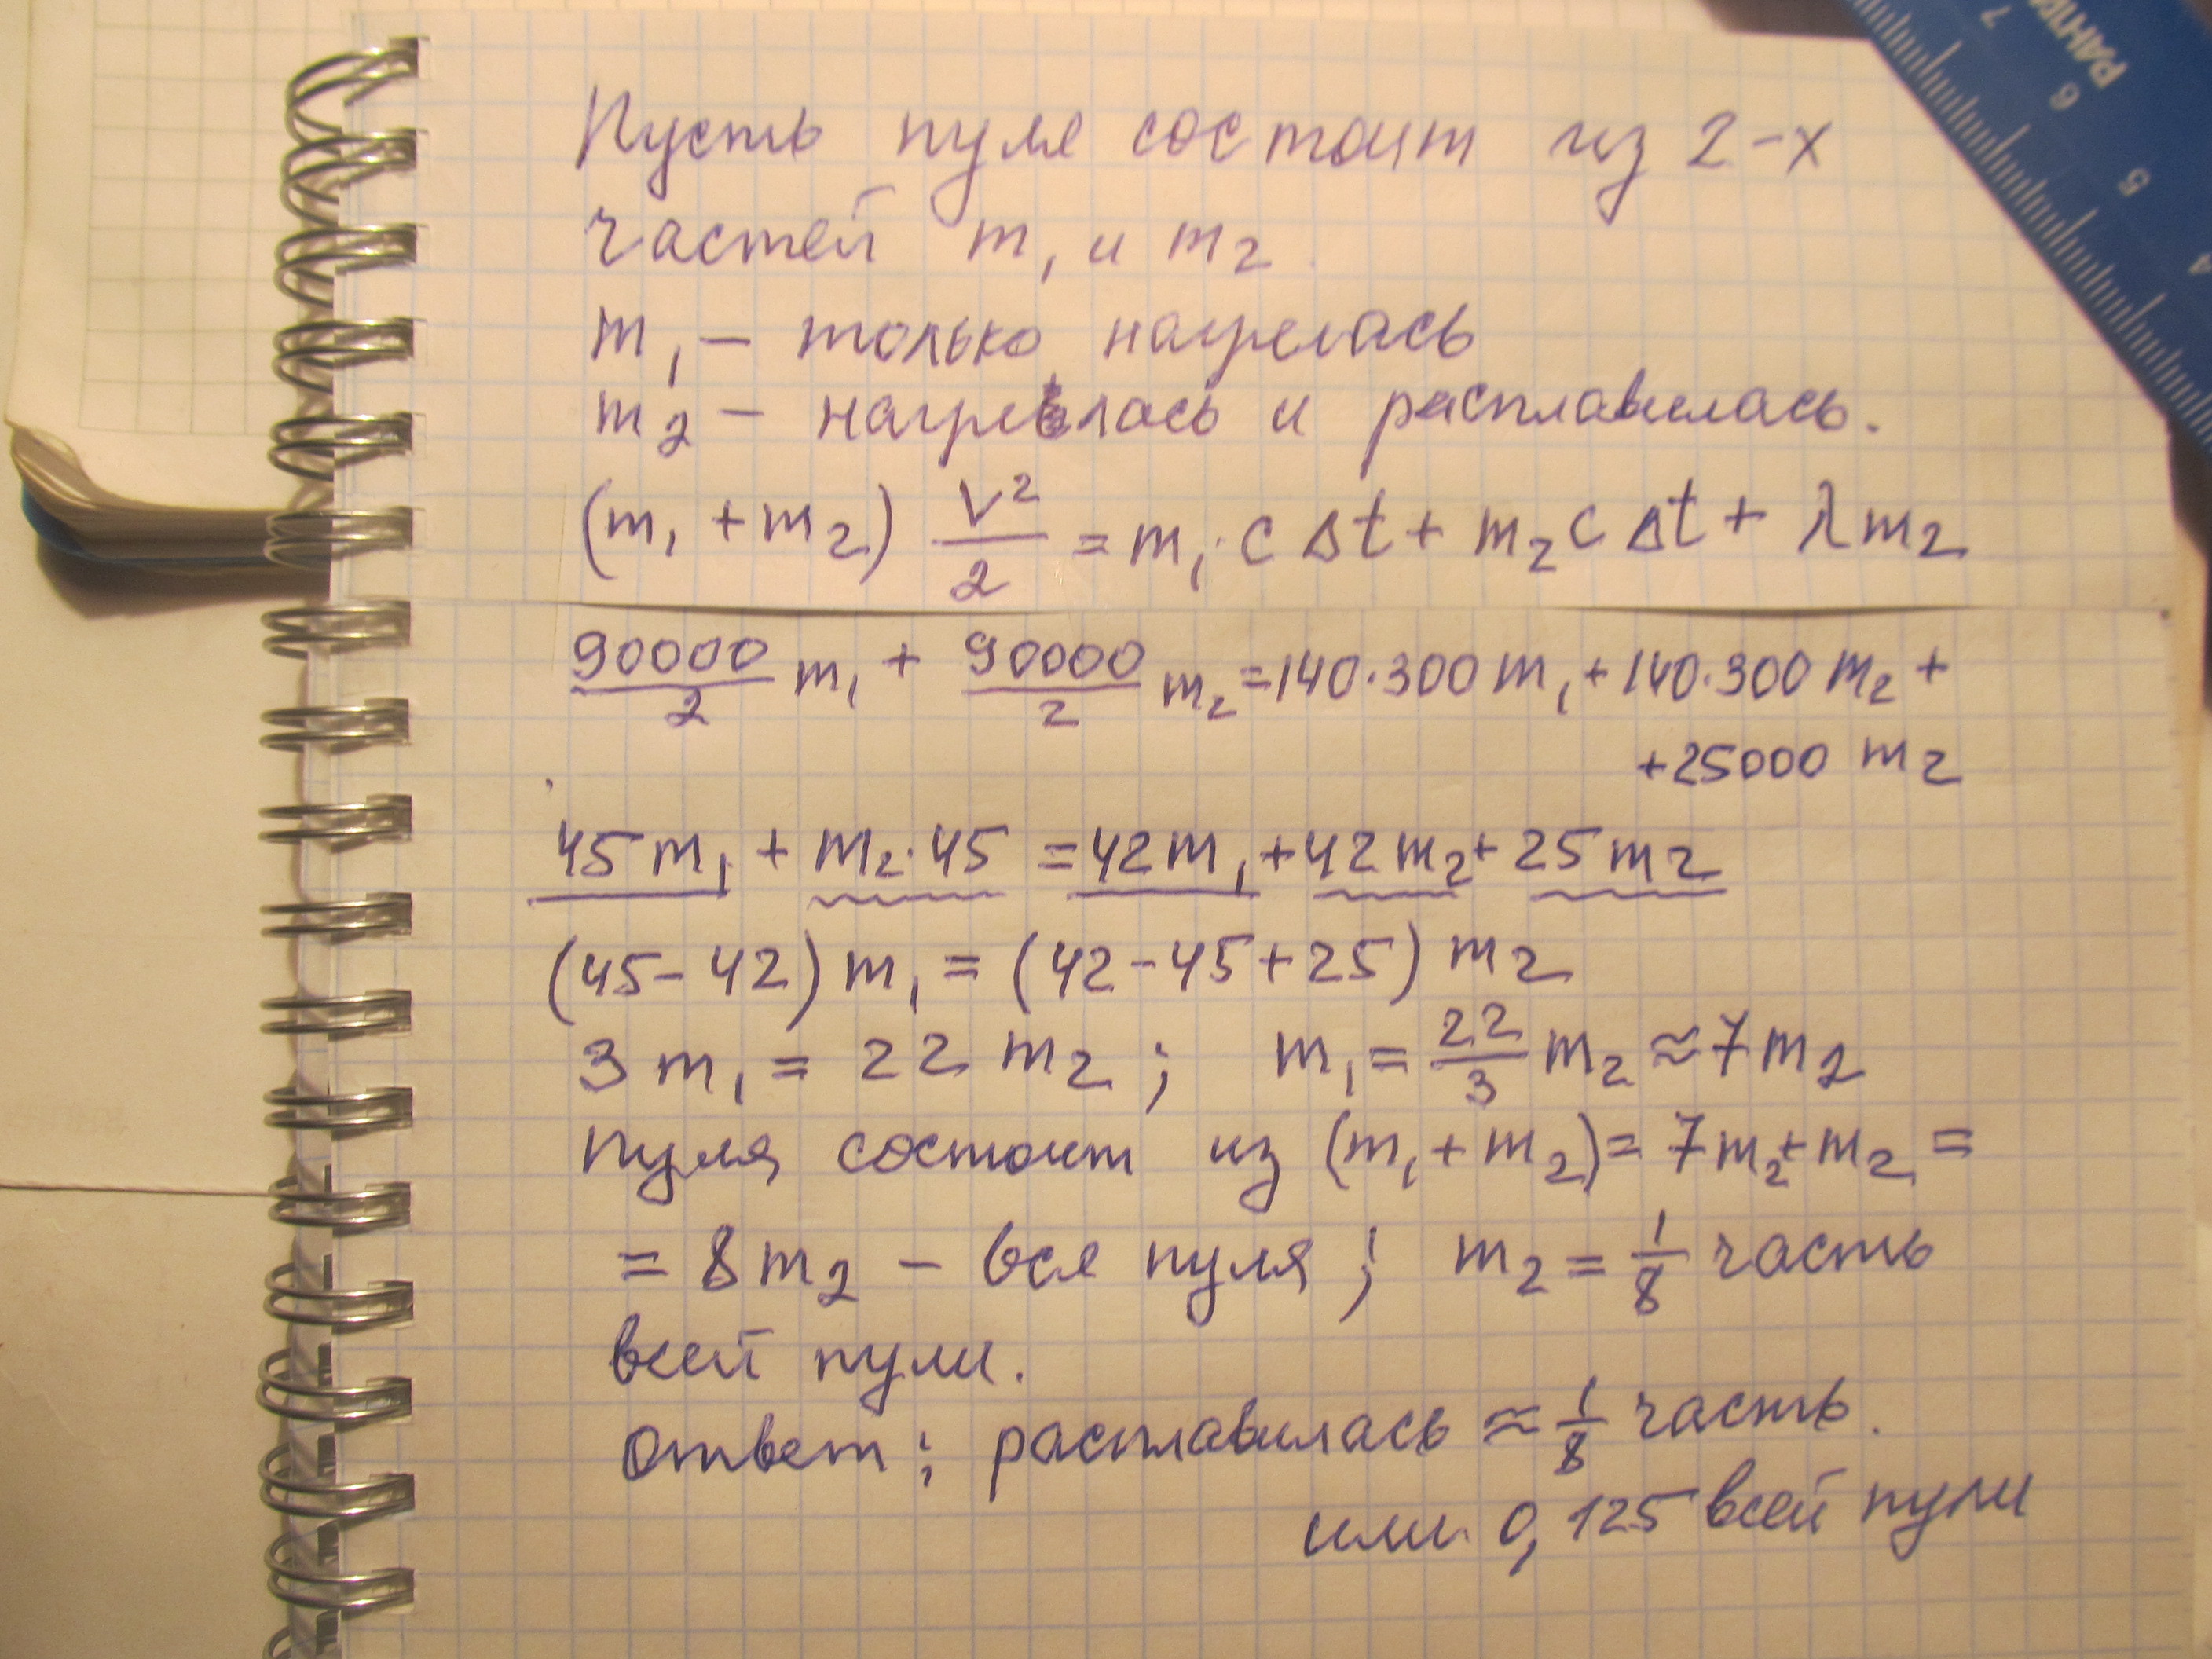 Пусть пуля состоит из 2-х
частей m₁ и m₂.
m₁ – только нагрелась
m₂ – нагрелась и расплавилась.
(m₁ + m₂) V²/2 = m₁·cΔt + m₂cΔt + λm₂
90000/2 m₁ + 90000/2 m₂ = 140·300m₁ + 140·300m₂ +
+25000 m₂
45m₁ + m₂·45 = 42m₁ + 42m₂ + 25m₂
(45-42)m₁ = (42-45+25)m₂
3m₁ = 22m₂; m₁ = 22/3 m₂ ≈ 7m₂
Пуля состоит из (m₁+m₂) = 7m₂+m₂ =
= 8m₂ – вся пуля; m₂ = 1/8 часть
всей пули.
Ответ: расплавилась ≈ 1/8 часть.
или 0,125 всей пули
7
6
5
4